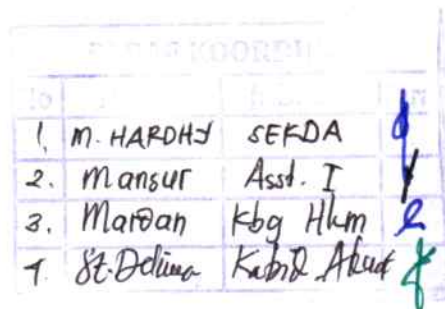 PARAF KOORDI
No
1. M. HARDHY SEKDA
2. Mansur Asst. I
3. Mardan Kbg Hkm
4. St. Delima Kabid Akunt